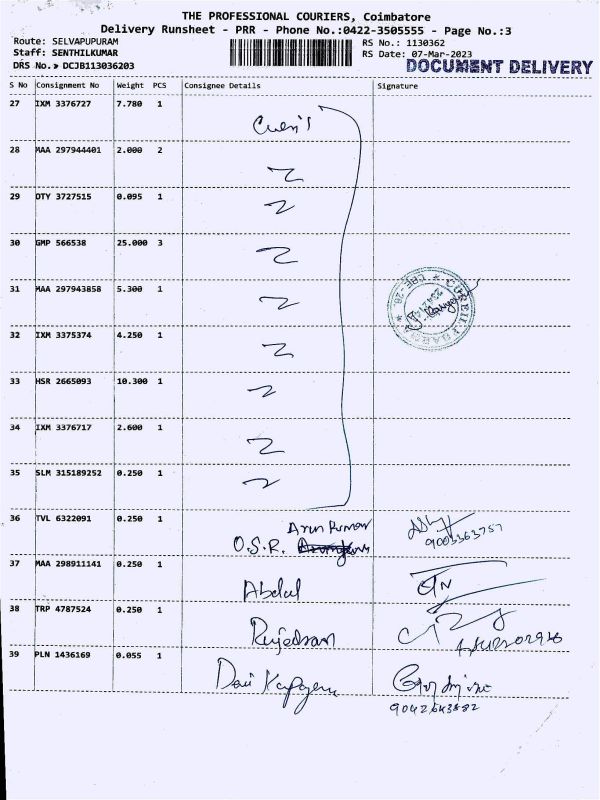 THE PROFESSIONAL COURIERS, Coimbatore
Delivery Runsheet - PRR - Phone No.:0422-3505555 - Page No.:3
Route: SELVAPUPURAM
RS No.: 1130362
Staff: SENTHILKUMAR
RS Date: 07-Mar-2023
DRS No.➤ DCJB113036203
DOCUMENT DELIVERY
S No Consignment No Weight PCS Consignee Details Signature
27 IXM 3376727 7.780 1
28 MAA 297944401 2.000 2
29 OTY 3727515 0.095 1
30 GMP 566538 25.000 3
31 MAA 297943858 5.300 1
32 IXM 3375374 4.250 1
33 HSR 2665093 10.300 1
34 IXM 3376717 2.600 1
35 SLM 315189252 0.250 1
36 TVL 6322091 0.250 1 Arun Kumar
O.S.R.
9003363757
37 MAA 298911141 0.250 1
Abdul
38 TRP 4787524 0.250 1
39 PLN 1436169 0.055 1
Devi
9042643882